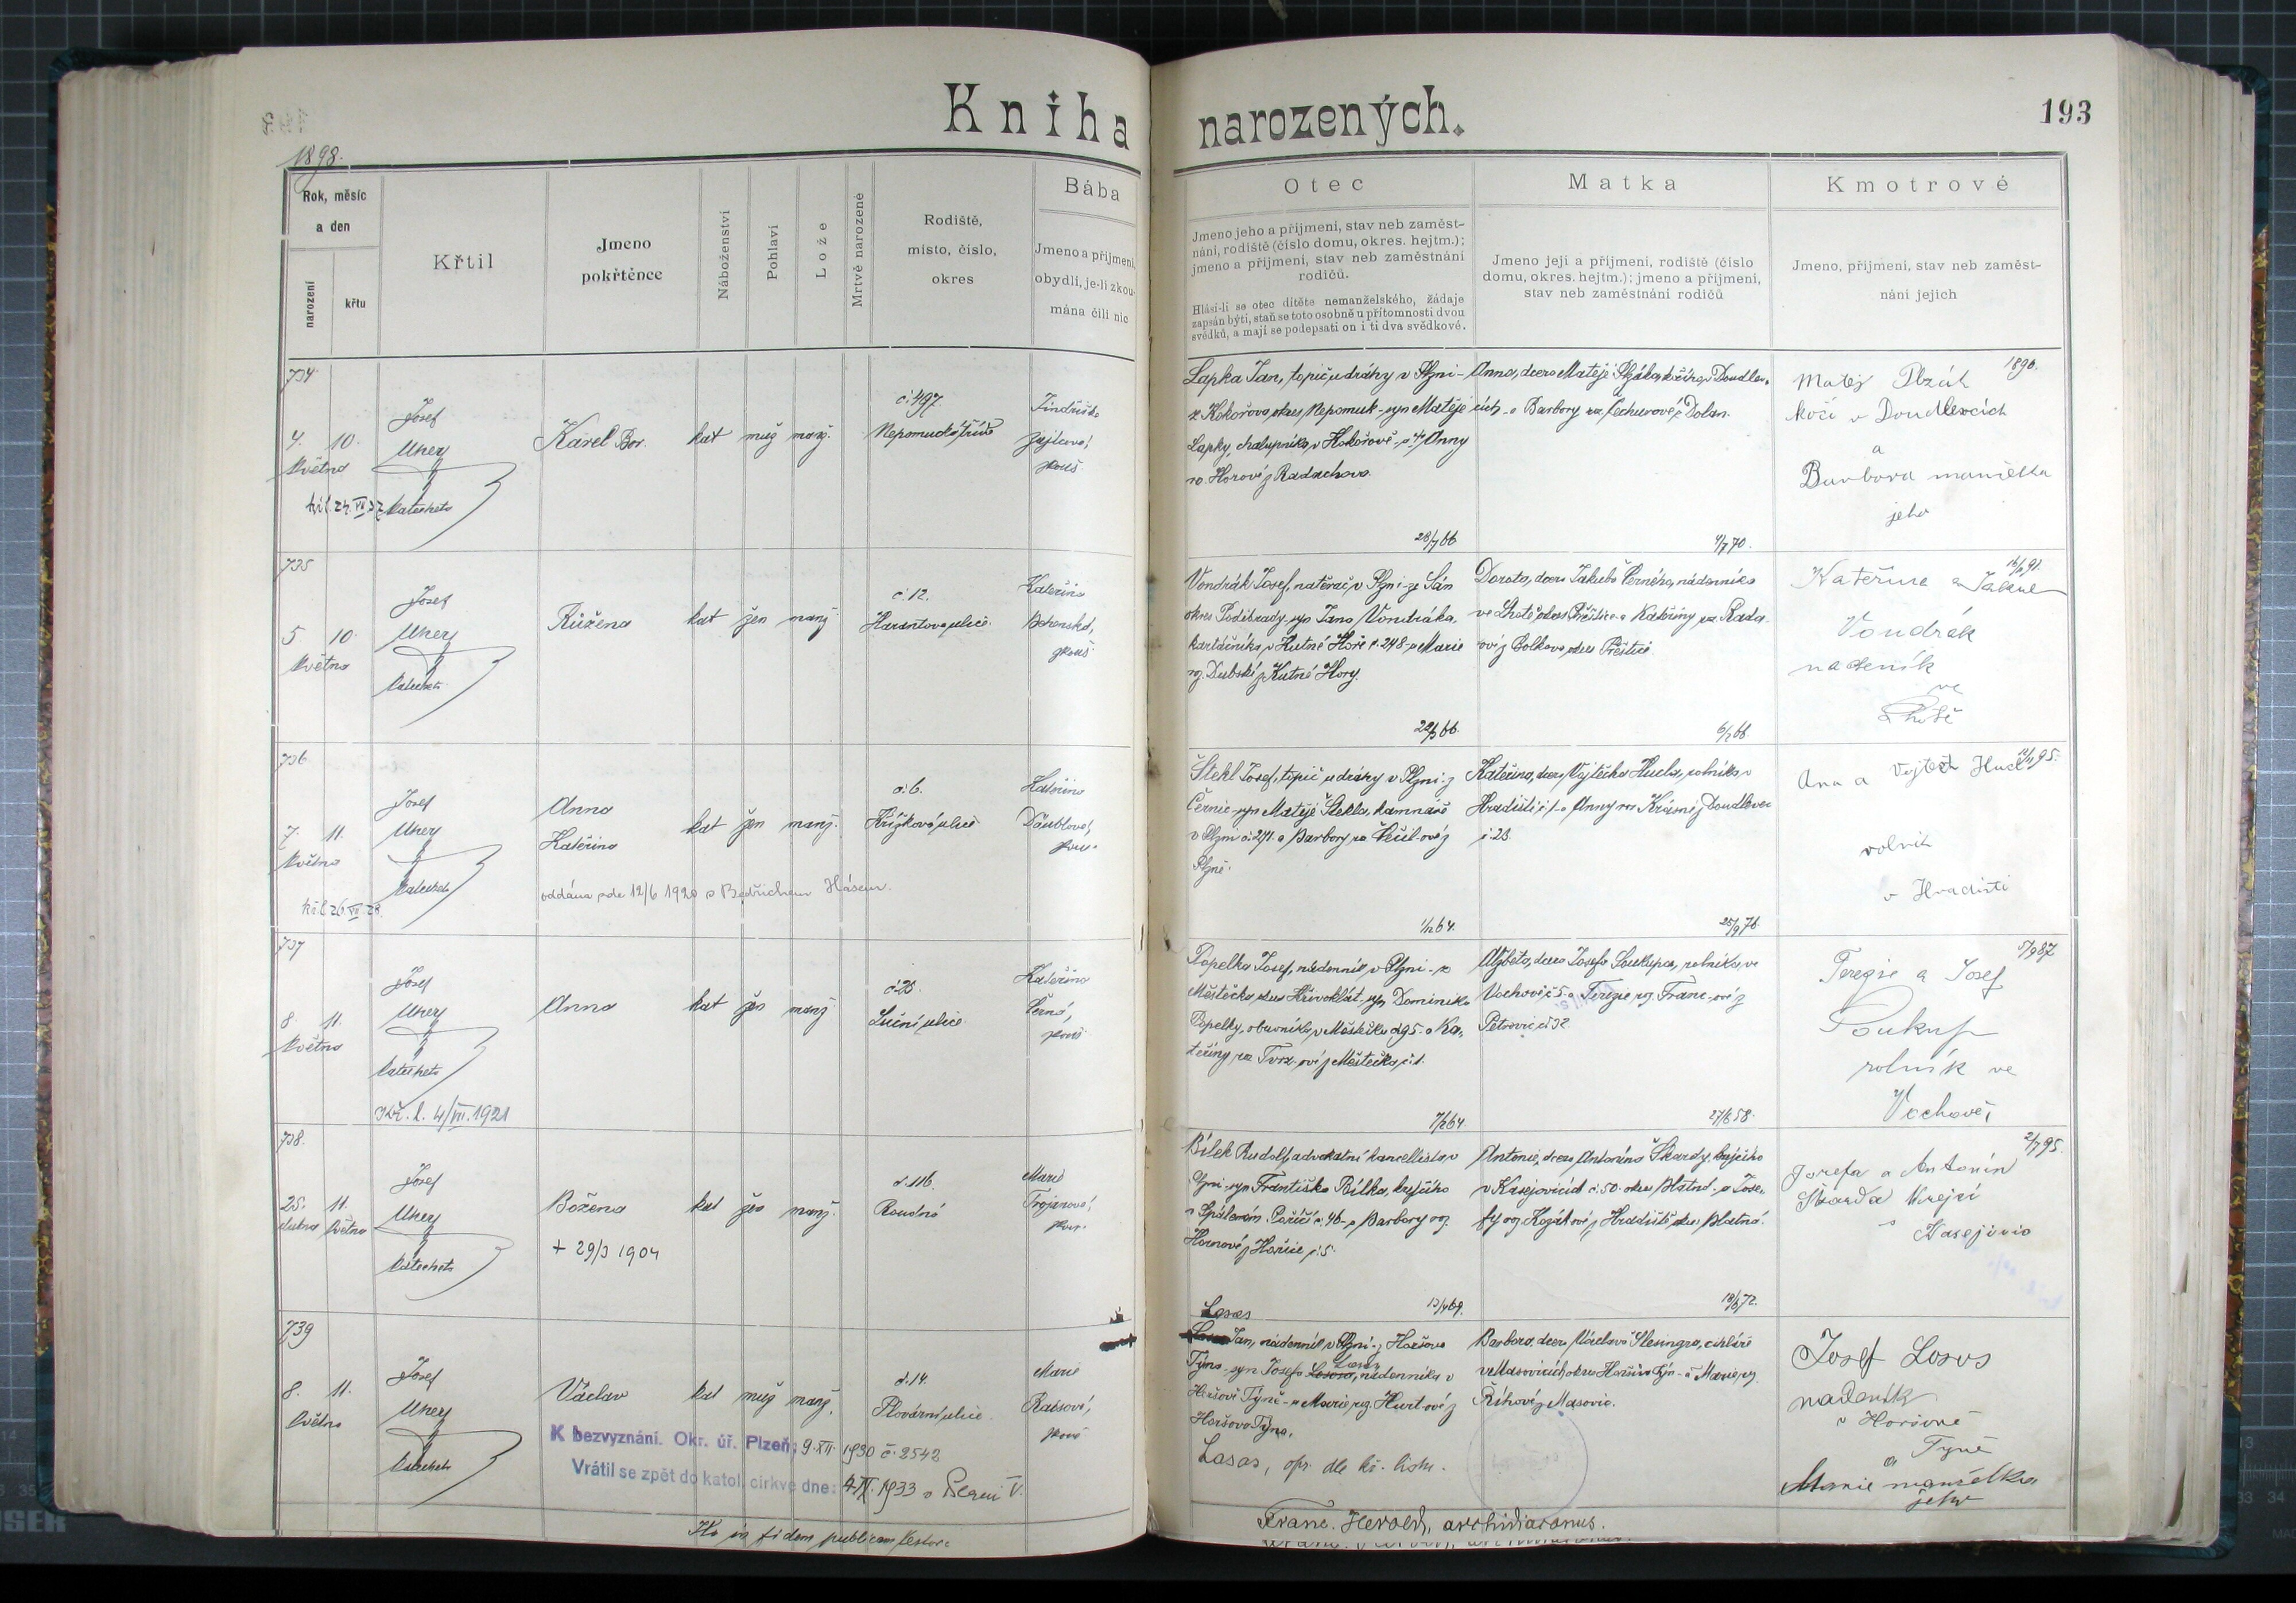 Kniha narozených.
193
1898.
Rok, měsíc
a den
narození
křtu
Křtil
Jmeno
pokřtěnce
Náboženství
Pohlaví
Lože
Mrtvě narozené
Rodiště,
místo, číslo,
okres
Bába
Jmeno a příjmení,
obydlí, je-li zkou-
mána čili nic
Otec
Jmeno jeho a příjmení, stav neb zaměst-
nání, rodiště (číslo domu, okres. hejtm.);
jmeno a příjmení, stav neb zaměstnání
rodičů.
Hlásí-li se otec dítěte nemanželského, žádaje
zapsán býti, staň se toto osobně u přítomnosti dvou
svědků, a mají se podepsati on i ti dva svědkové.
Matka
Jmeno její a příjmení, rodiště (číslo
domu, okres. hejtm.); jmeno a příjmení,
stav neb zaměstnání rodičů
Kmotrové
Jmeno, příjmení, stav neb zaměst-
nání jejich
734
4. 10.
Května
Josef
Uherz
katecheta
Karel Bor.
kat muž manž.
č. 497.
Nepomucká třída
Jindřiška
zkouš
Lapka Jan, topič u dráhy v Plzni -
z Kokořova okres Nepomuk - syn Matěje
Lapky, chalupníka v Kokořově - a Anny
roz. Horové z Radochova.
28/7 66
Anna, dcera Matěje
a Barbory roz. z Dolan.
4/7 70.
1890.
Matěj
kočí v Doudlevcích
a
Barbora manželka
jeho
735
5. 10.
Května
Josef
katecheta
Růžena
kat žen manž
č. 12.
Harantova ulice
Kateřina
zkouš
Vondrák Josef, natěrač v Plzni - ze Sán
okres Poděbrady, syn Jana Vondráka,
kartáčníka v Kutné Hoře č. 248 - a Marie
roz. Dubské z Kutné Hory.
Dorota, dcera Jakuba Černého, nádenníka
ve Lhotě okres Přeštice a Kateřiny roz.
z Bolkova okres Přeštice.
Kateřina a Jakub
Vondrák
nadeník
ve
Lhotě
736
7. 11.
Května
Josef
katecheta
Anna
Kateřina
kat žen manž.
oddána dne 12/6 1920 s Bedřichem Hásem.
č. 6.
Křížkova ulice
Kateřina
Däublová,
zkouš
Štekl Josef, topič u dráhy v Plzni - z
Černic - syn Matěje Štekla, kamnáře
v Plzni č. 271. a Barbory roz.
Plzně.
1/12 64.
Kateřina, dcera Vojtěcha Hucla, rolníka v
Hradišti č. 1 - a Anny roz. Krásné z Doudlevec
č. 23.
25/9 76.
Ana a Vojtěch Hucl
rolník
v Hradišti
737
8. 11.
Května
Josef
katecheta
Kř. l. 4/VII. 1921
Anna
kat žen manž
č. 25.
Luční ulice
Kateřina
Černá,
zkouš
Popelka Josef, nádenník v Plzni - z
Městečka okres Křivoklát - syn Dominika
Popelky, obuvníka v Městečku č. 95. a Ka-
teřiny roz. z Městečka č. 1.
7/2 64
Alžběta, dcera Josefa Soukupa, rolníka ve
Vochově č. 5 a Terezie roz. Franc-ové z
Petrovic č. 32.
27/6 58.
Terezie a Josef
Soukup
rolník ve
Vochově,
738.
25. 11.
dubna Května
Josef
katecheta
Božena
kat žen manž.
+ 29/3 1904
č. 116.
Roudná
Marie
Trojanová,
zkouš
Bílek Rudolf, advokátní kancellista v
Plzni - syn Františka Bílka, krejčího
v Spáleném Poříčí č. 46 - a Barbory roz.
Hornové z Hořic č. 5.
Antonie, dcera Antonína Škardy, krejčího
v Kasejovicích č. 50. okres Blatná - a Jose-
fy roz. Kozákové z Hradiště okres Blatná.
2/7 95.
Josefa a Antonín
Škarda krejčí
v Kasejovic
739
8. 11.
Května
Josef
katecheta
Václav
kat muž manž.
K bezvyznání. Okr. úř. Plzeň; 9. XII. 1930 č. 2542
Vrátil se zpět do katol. církve dne: 4. IX. 1933 v Plzni V.
č. 14.
Plovární ulice
Marie
Raisová,
zkouš
Lasas
Jan, nádenník v Plzni - z Horšova
Týna - syn Josefa Lasas, nádenníka v
Horšově Týně - a Marie roz. Hurt-ové z
Horšova Týna.
Lasas, opr. dle kř. listu.
13/4 69.
Barbora, dcera Václava Slesingra, cihláře
v Mašovicích okres Horšův Týn - a Marie roz.
Říhové z Mašovic.
18/6 72.
Josef Losos
nadeník
v Horšově
Týně
a
Marie manželka
jeho
In fidem publicam testor:
Franc. Herold, archidiaconus.